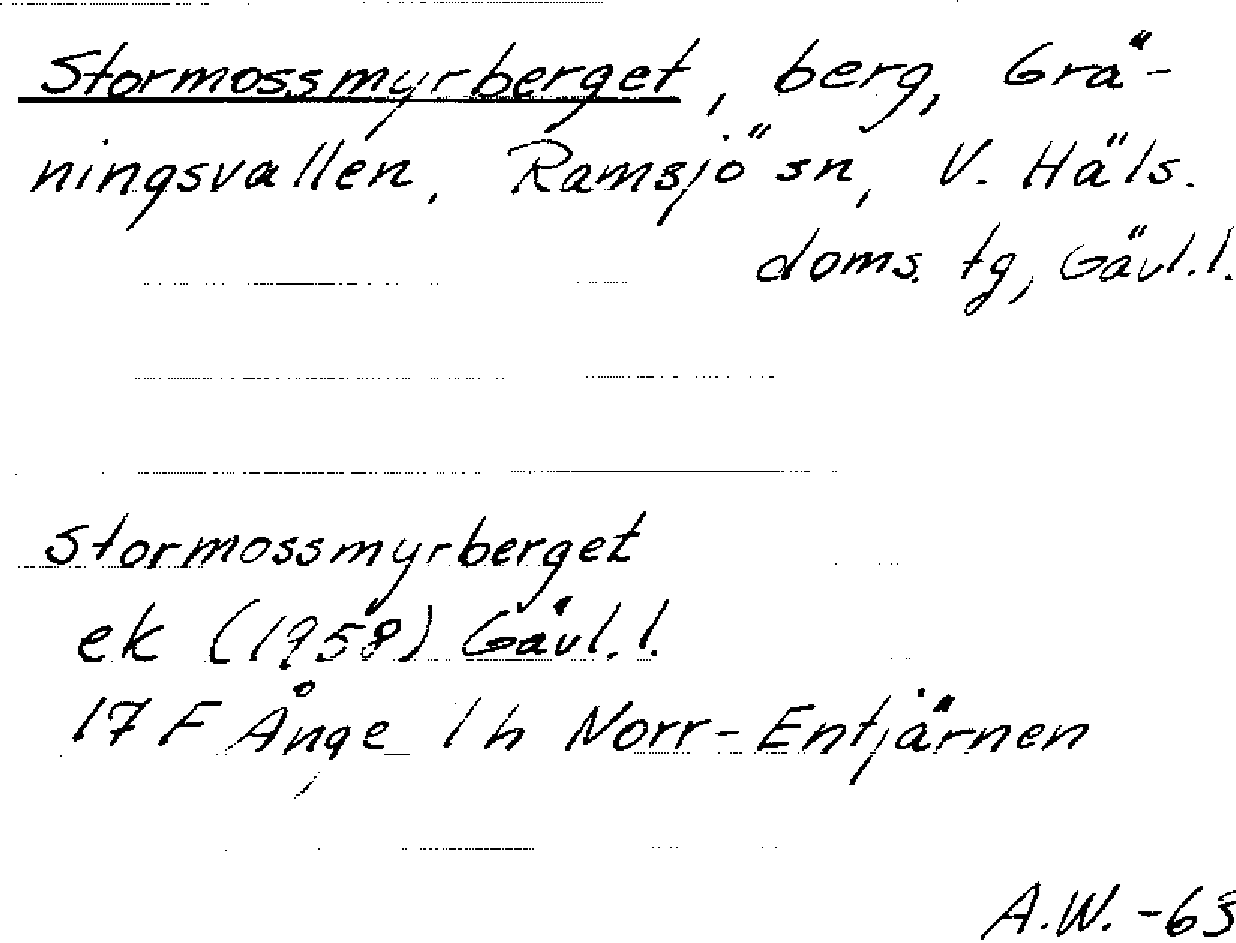 Stormossmyrberget, berg, Grä-
ningsvallen, Ramsjö sn, V. Häls.
doms. tg, Gävl.l.
Stormossmyrberget
ek (1958) Gävl.l.
17 F Ånge 1 h Norr-Entjärnen
A.W. -63